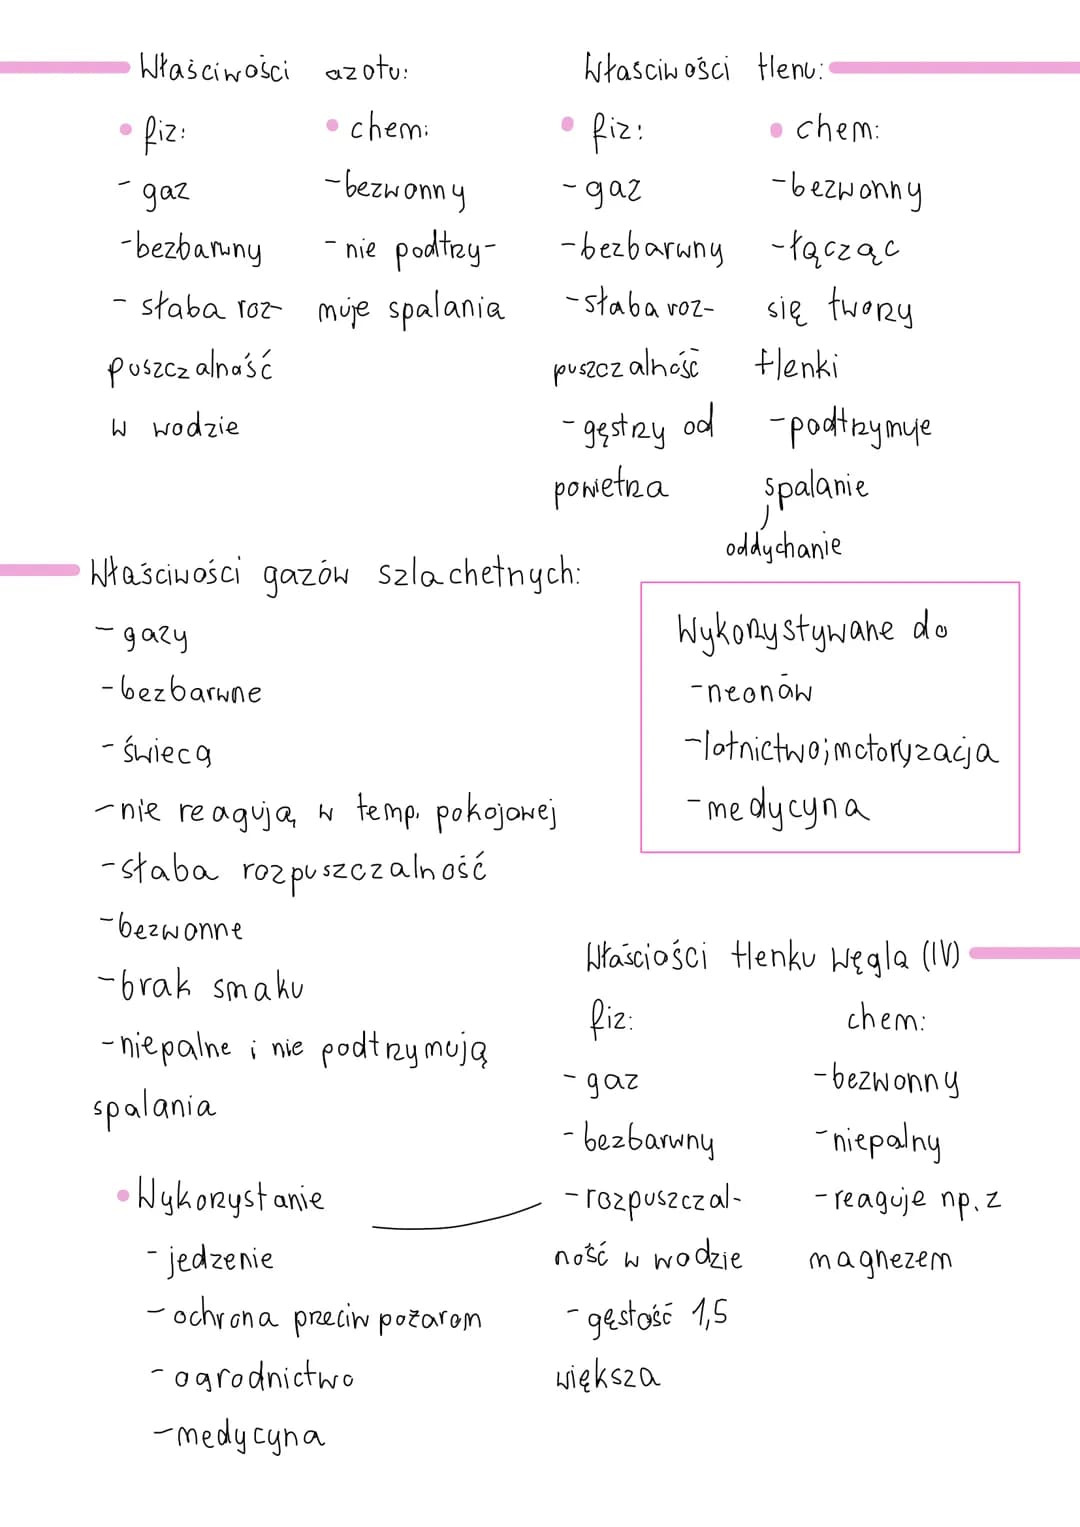 Właściwości azotu:
• fiz:
- gaz
- bezbarwny
- słaba roz-
puszczalność
w wodzie
• chem:
- bezwonny
- nie podtrzy-
muje spalania
Własciwości tlenu:
• fiz:
- gaz
- bezbarwny
- słaba roz-
puszczalność
- gęstrzy od
powietrza
• chem:
- bezwonny
- łącząc
się tworzy
tlenki
- podtrzymuje
spalanie
oddychanie
Właściwości gazów szlachetnych:
- gazy
- bezbarwne
- świecą
- nie reagują w temp. pokojowej
- słaba rozpuszczalność
- bezwonne
- brak smaku
- niepalne i nie podtrzymują
spalania
Wykorzystywane do
- neonów
- lotnictwo; motoryzacja
- medycyna
• Wykorzystanie
- jedzenie
- ochrona przeciw pożarom
- ogrodnictwo
- medycyna
Właściości tlenku węgla (IV)
fiz:
- gaz
- bezbarwny
- rozpuszczal-
ność w wodzie
- gęstość 1,5
większa
chem:
- bezwonny
- niepalny
- reaguje np. z
magnezem